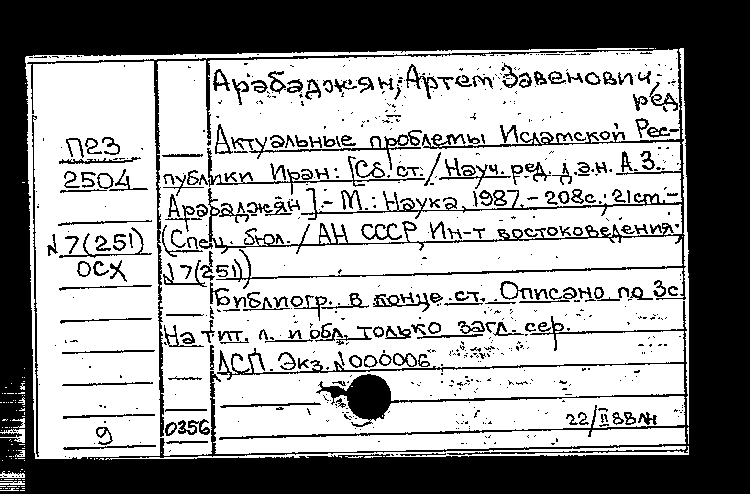 Арабаджян, Артем Завенович,
ред
П23
2504
N7(251)
ОСХ
Актуальные проблемы Исламской Рес-
публики Иран: [Сб. ст. / Науч. ред. д.э.н. А.З.
Арабаджян]. - М.: Наука, 1987. - 208с.; 21см. -
(Спец. бюл. / АН СССР, Ин-т востоковедения;
N7(251))
Библиогр. в конце ст. Описано по 3с.
На тит. л. и обл. только загл. сер.
ДСП. Экз. N000006.
9
0356
22/II 88